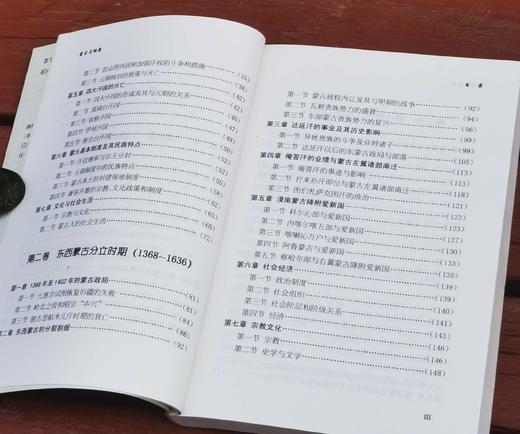 蒙古史纲要
第二节 忽必烈巩固和加强汗权的斗争和措施 (35)
第三节 元朝统治的衰落与灭亡 (38)
第五章 四大汗国的兴亡 (42)
第一节 四大汗国的形成及其与元朝的关系 (42)
第二节 窝阔台汗国
第三节 钦察汗国
第四节 伊利汗国
第五节 察合台汗国 (50)
第六章 蒙元基本制度及其民族特点
第一节 汗位继承与宗王分封
第二节 元朝制度中的民族特点
第三节 蒙古本土的封建领地制度
第四节 蒙元时期的宗教、文化政策和制度
第七章 文化与社会生活 (65)
第一节 宗教与文化 (65)
第二节 蒙古人的社会生活 (72)
第二卷 东西蒙古分立时期（1368～1636）
第一章 1368年至1402年的蒙古政局 (81)
第一节 元惠宗试图恢复旧疆的失败 (81)
第二节 岭北之役和昭宗“中兴” (84)
第三节 脱古思帖木儿汗时期的衰亡 (88)
第二章 东西蒙古的分裂割据 (92)
目 录
第一节 蒙古政权内以及其与明朝的战争 (92)
第二节 瓦剌贵族势力的盛衰
第三节 东部蒙古贵族势力的复兴
第三章 达延汗的事业及其历史影响
第一节 异姓贵族的斗争及分封诸子
第二节 达延汗以后的东蒙古政局与部落
第四章 俺答汗的业绩与蒙古左翼诸部南迁 (113)
第一节 俺答汗的事迹与影响 (113)
第二节 打来孙汗即位与蒙古左翼诸部南迁 (116)
第三节 图们札萨克图汗的统治
第五章 漠南蒙古降附爱新国 (123)
第一节 科尔沁部与爱新国 (123)
第二节 内喀尔喀五部与爱新国
第三节 喀喇沁万户与爱新国
第四节 阿鲁蒙古与爱新国
第五节 察哈尔部与右翼蒙古降附爱新国
第六章 社会经济
第一节 政治制度
第二节 社会组织
第三节 社会阶层和阶级关系
第四节 经济 (143)
第七章 宗教文化 (146)
第一节 宗教 (146)
第二节 史学与文学 (148)
III